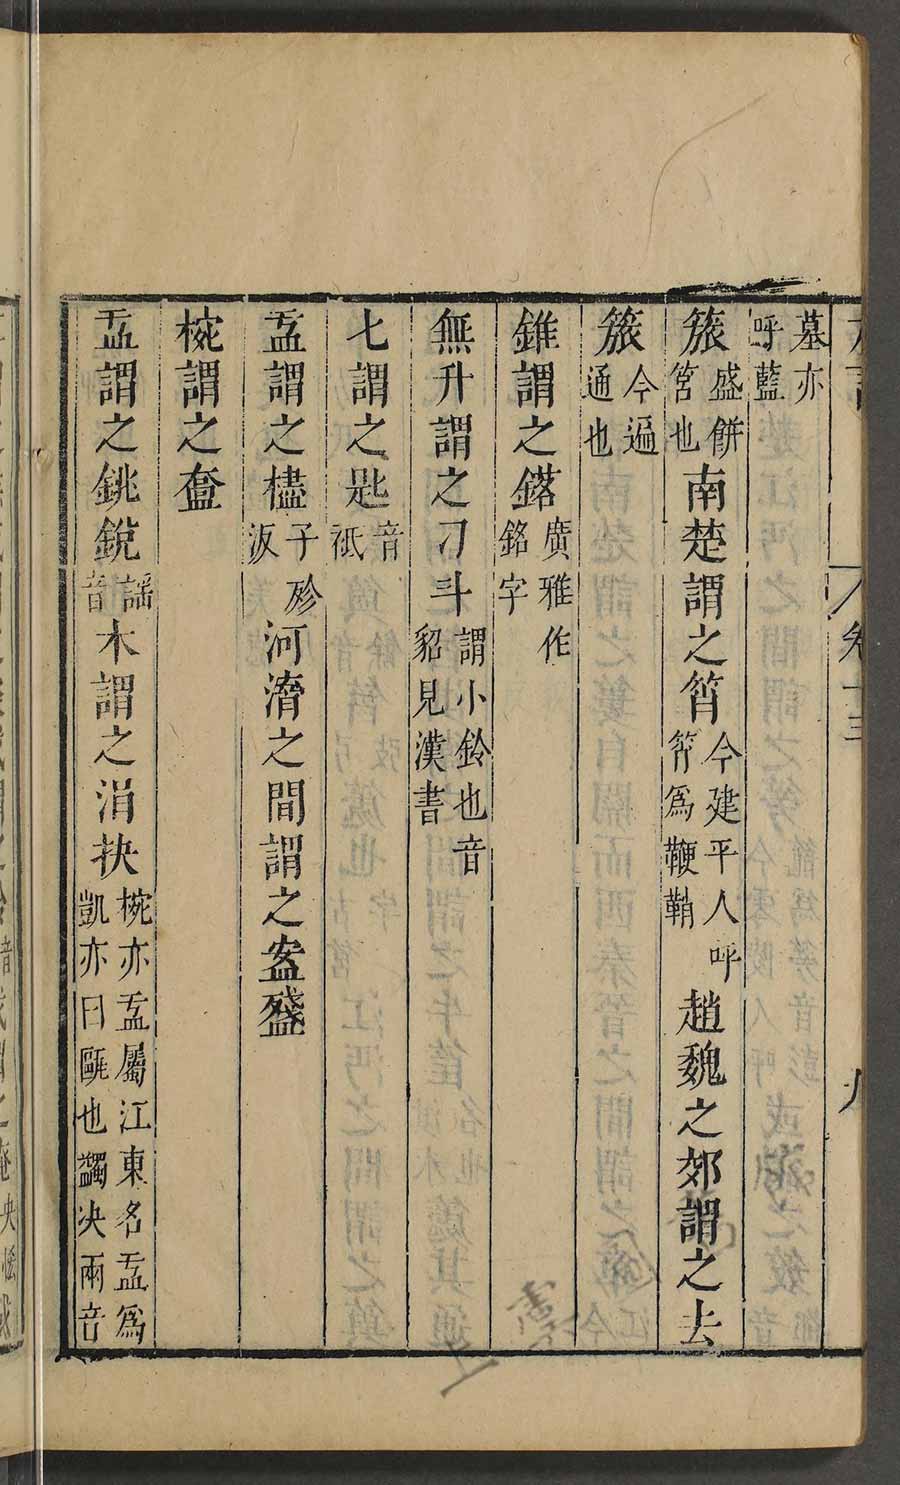 墓亦呼藍
簇盛餅筥也南楚謂之筲今建平人呼筲爲鞭鞘趙魏之郊謂之去
簇今遍通也
錐謂之鍣廣雅作銘字
無升謂之刁斗謂小鈴也音貂見漢書
匕謂之匙音祇
盂謂之㯸子殄河濟之間謂之㿿
椀謂之㿻
盂謂之銚銳謠音木謂之涓抉椀亦盂屬江東名盂爲凱亦曰甌也蠲决兩音
卷十三